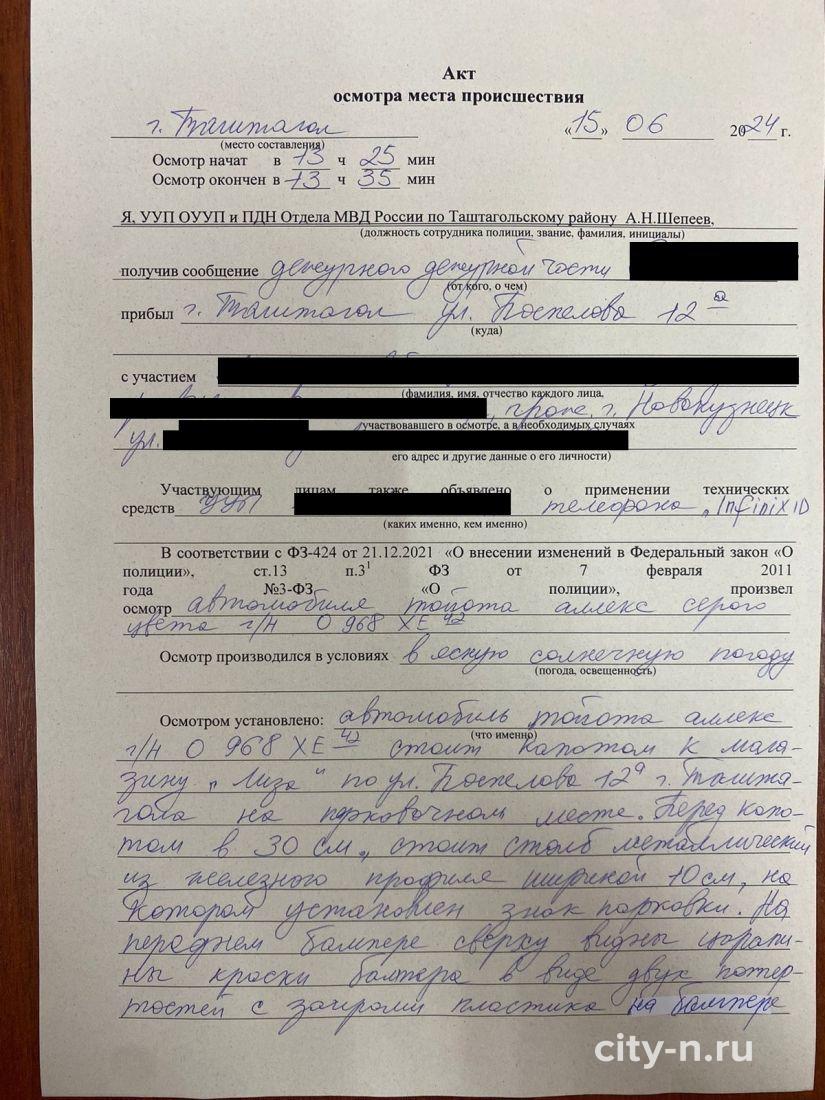 Акт
осмотра места происшествия
г. Таштагол «15» 06 2024 г.
(место составления)
Осмотр начат в 13 ч 25 мин
Осмотр окончен в 13 ч 35 мин
Я, УУП ОУУП и ПДН Отдела МВД России по Таштагольскому району А.Н.Шепеев,
(должность сотрудника полиции, звание, фамилия, инициалы)
получив сообщение дежурного дежурной части
(от кого, о чем)
прибыл г. Таштагол ул. Поспелова 12 а
(куда)
с участием
(фамилия, имя, отчество каждого лица,
г. Новокузнецк
участвовавшего в осмотре, а в необходимых случаях
ул.
его адрес и другие данные о его личности)
Участвующим лицам также объявлено о применении технических
средств УУП телефона „Infinix
(каких именно, кем именно)
В соответствии с ФЗ-424 от 21.12.2021 «О внесении изменений в Федеральный закон «О
полиции», ст.13 п.3¹ ФЗ от 7 февраля 2011
года №3-ФЗ «О полиции», произвел
осмотр автомобиля тойота аллекс серого
цвета г/н О 968 ХЕ 42
Осмотр производился в условиях в ясную солнечную погоду
(погода, освещенность)
Осмотром установлено: автомобиль тойота аллекс
(что именно)
г/н О 968 ХЕ 42 стоит капотом к мага-
зину „Лиза“ по ул. Поспелова 12а г. Ташта-
гола на парковочном месте. Перед капо-
том в 30 см., стоит столб металлический
из железного профиля шириной 10 см, на
котором установлен знак парковки. На
переднем бампере сверху видны царапи-
ны краски бампера в виде двух потер-
тостей с задирами пластика на бампере
city-n.ru